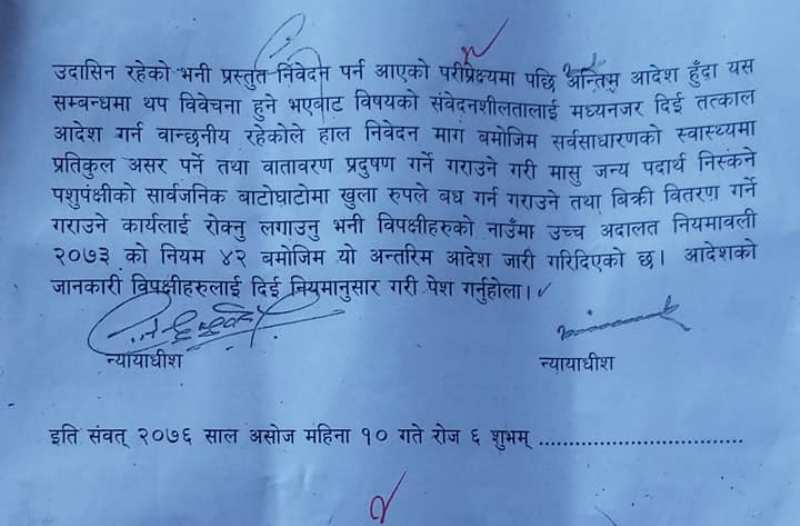 उदासिन रहेको भनी प्रस्तुत निवेदन पर्न आएको परीप्रेक्ष्यमा पछि अन्तिम आदेश हुँदा यस
सम्बन्धमा थप विवेचना हुने भएबाट विषयको संवेदनशीलतालाई मध्यनजर दिई तत्काल
आदेश गर्न वान्छनीय रहेकोले हाल निवेदन माग बमोजिम सर्वसाधारणको स्वास्थ्यमा
प्रतिकुल असर पर्ने तथा वातावरण प्रदुषण गर्ने गराउने गरी मासु जन्य पदार्थ निस्कने
पशुपंक्षीको सार्वजनिक बाटोघाटोमा खुला रुपले बध गर्न गराउने तथा बिक्री वितरण गर्ने
गराउने कार्यलाई रोक्नु लगाउनु भनी विपक्षीहरुको नाउँमा उच्च अदालत नियमावली
२०७३ को नियम ४२ बमोजिम यो अन्तरिम आदेश जारी गरिदिएको छ। आदेशको
जानकारी विपक्षीहरुलाई दिई नियमानुसार गरी पेश गर्नुहोला।
न्यायाधीश न्यायाधीश
इति संवत् २०७६ साल असोज महिना १० गते रोज ६ शुभम् ..................................